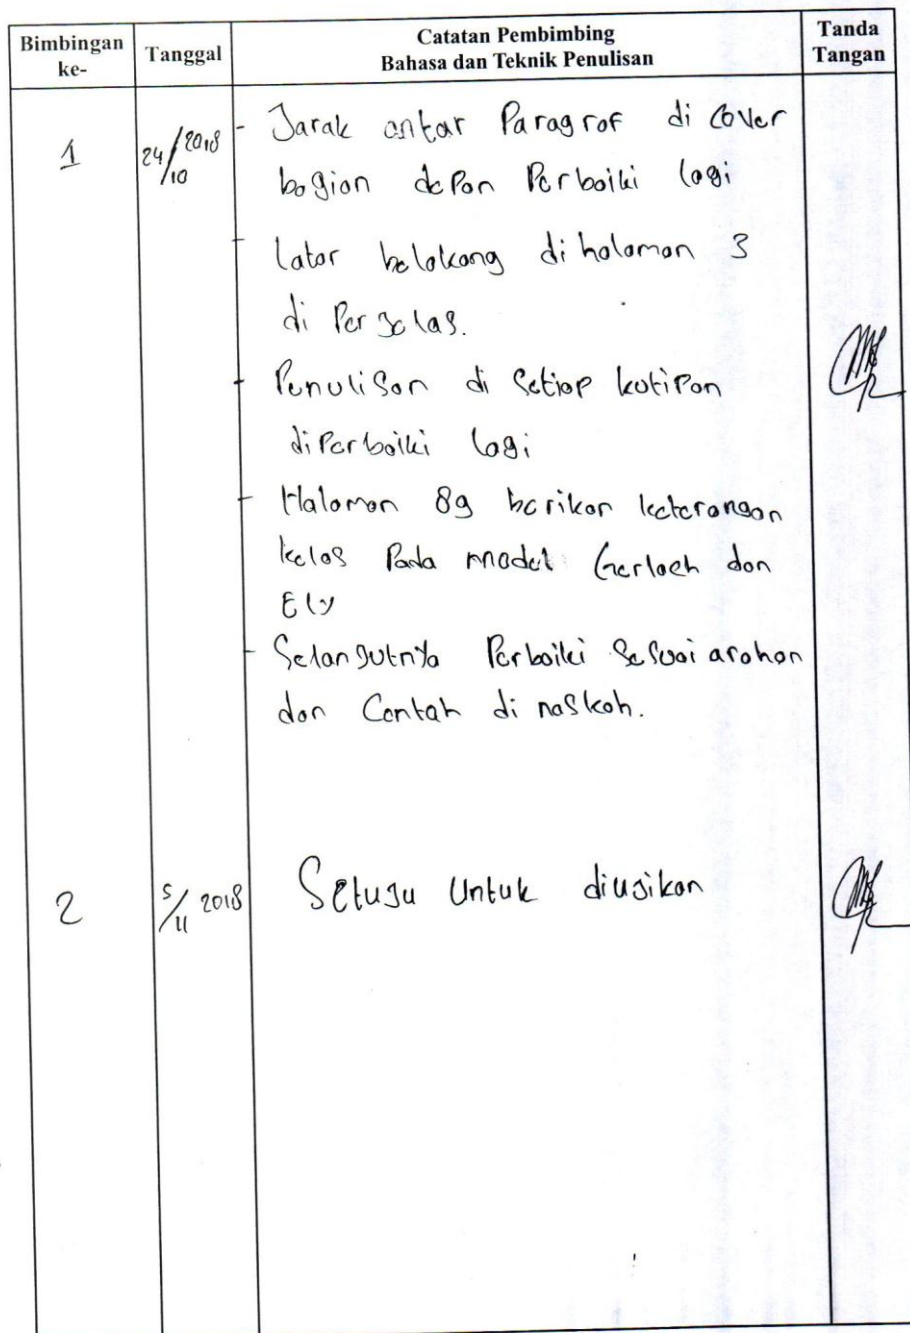 Bimbingan ke-
Tanggal
Catatan Pembimbing
Bahasa dan Teknik Penulisan
Tanda Tangan
1
24/10 2018
- Jarak antar Paragraf di Cover
bagian depan Perbaiki lagi
- Latar belakang di halaman 3
di Perjelas.
- Penulisan di Setiap kutipan
diperbaiki lagi
- Halaman 89 berikan keterangan
kelas Pada model Gerlach dan
Ely
- Selanjutnya Perbaiki Sesuai arahan
dan Contah di naskah.
2
5/11 2018
Setuju Untuk diujikan